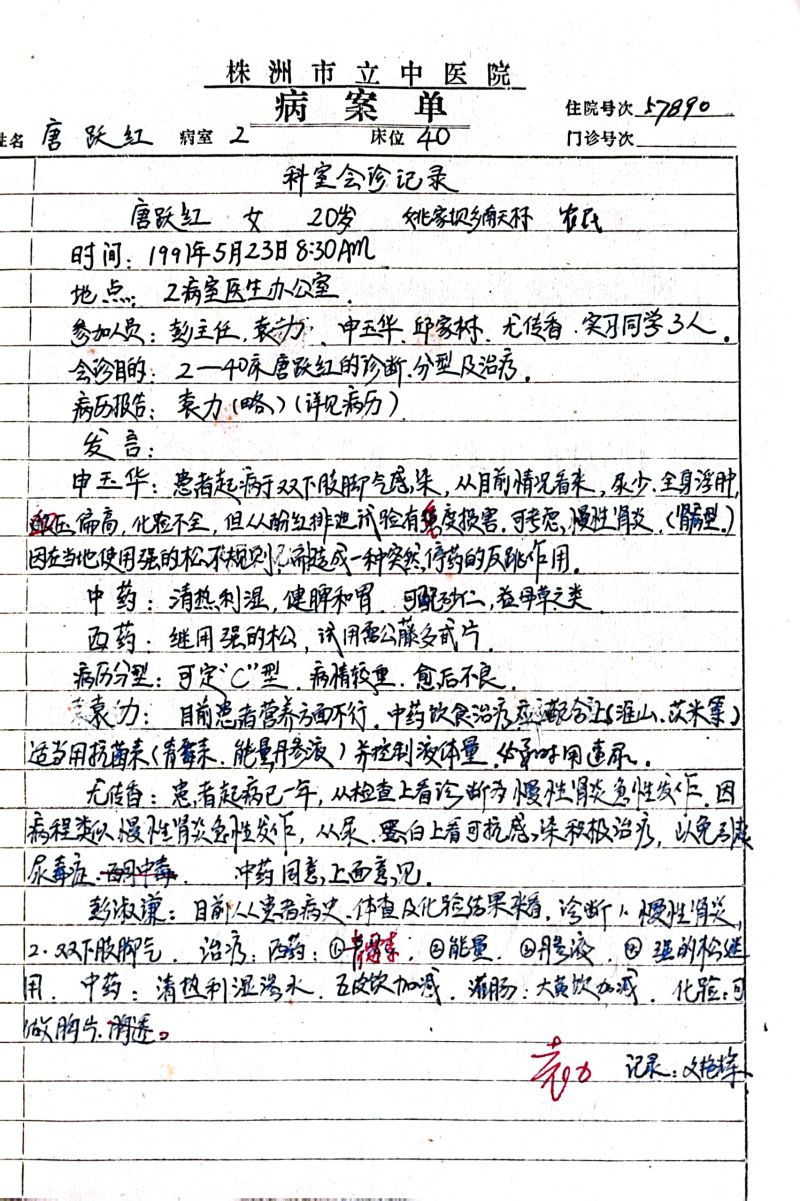 株洲市立中医院
病案单
住院号次 57890
姓名 唐跃红 病室 2 床位 40 门诊号次
科室会诊记录
唐跃红 女 20岁 姚家坝乡南天村 农民
时间：1991年5月23日8:30AM
地点：2病室医生办公室.
参加人员：彭主任.袁力.申玉华.邱家树.尤传香.实习同学3人.
会诊目的：2—40床唐跃红的诊断.分型及治疗.
病历报告：袁力(略)(详见病历)
发言：
申玉华：患者起病于双下肢脚气感染,从目前情况看来,尿少.全身浮肿,
血压偏高,化验不全,但从酚红排泄试验有重度损害.可考虑,慢性肾炎.(肾病型.)
因在当地使用强的松不规则,而造成一种突然停药的反跳作用.
中药：清热利湿,健脾和胃.可配砂仁,益母草之类.
西药：继用强的松,试用雷公藤多甙片.
病历分型：可定"C"型.病情较重.愈后不良.
袁力：目前患者营养方面不行.中药饮食治疗应配合上(淮山.苡米等)
适当用抗菌素(青霉素.能量.丹参液)并控制液体量.必要时用速尿.
尤传香：患者起病已一年,从检查上看诊断为慢性肾炎急性发作.因
病程类似慢性肾炎急性发作,从尿.蛋白上看可抗感染积极治疗,以免引起
尿毒症. 中药同意上面意见.
彭淑谦：目前从患者病史.体查及化验结果来看,诊断1.慢性肾炎,
2.双下肢脚气.治疗：西药：①青霉素.②能量.③丹参液.④强的松继
用.中药：清热利湿渗水.五皮饮加减.灌肠：大黄饮加减.化验：可
做胸片.
袁力 记录：文艳